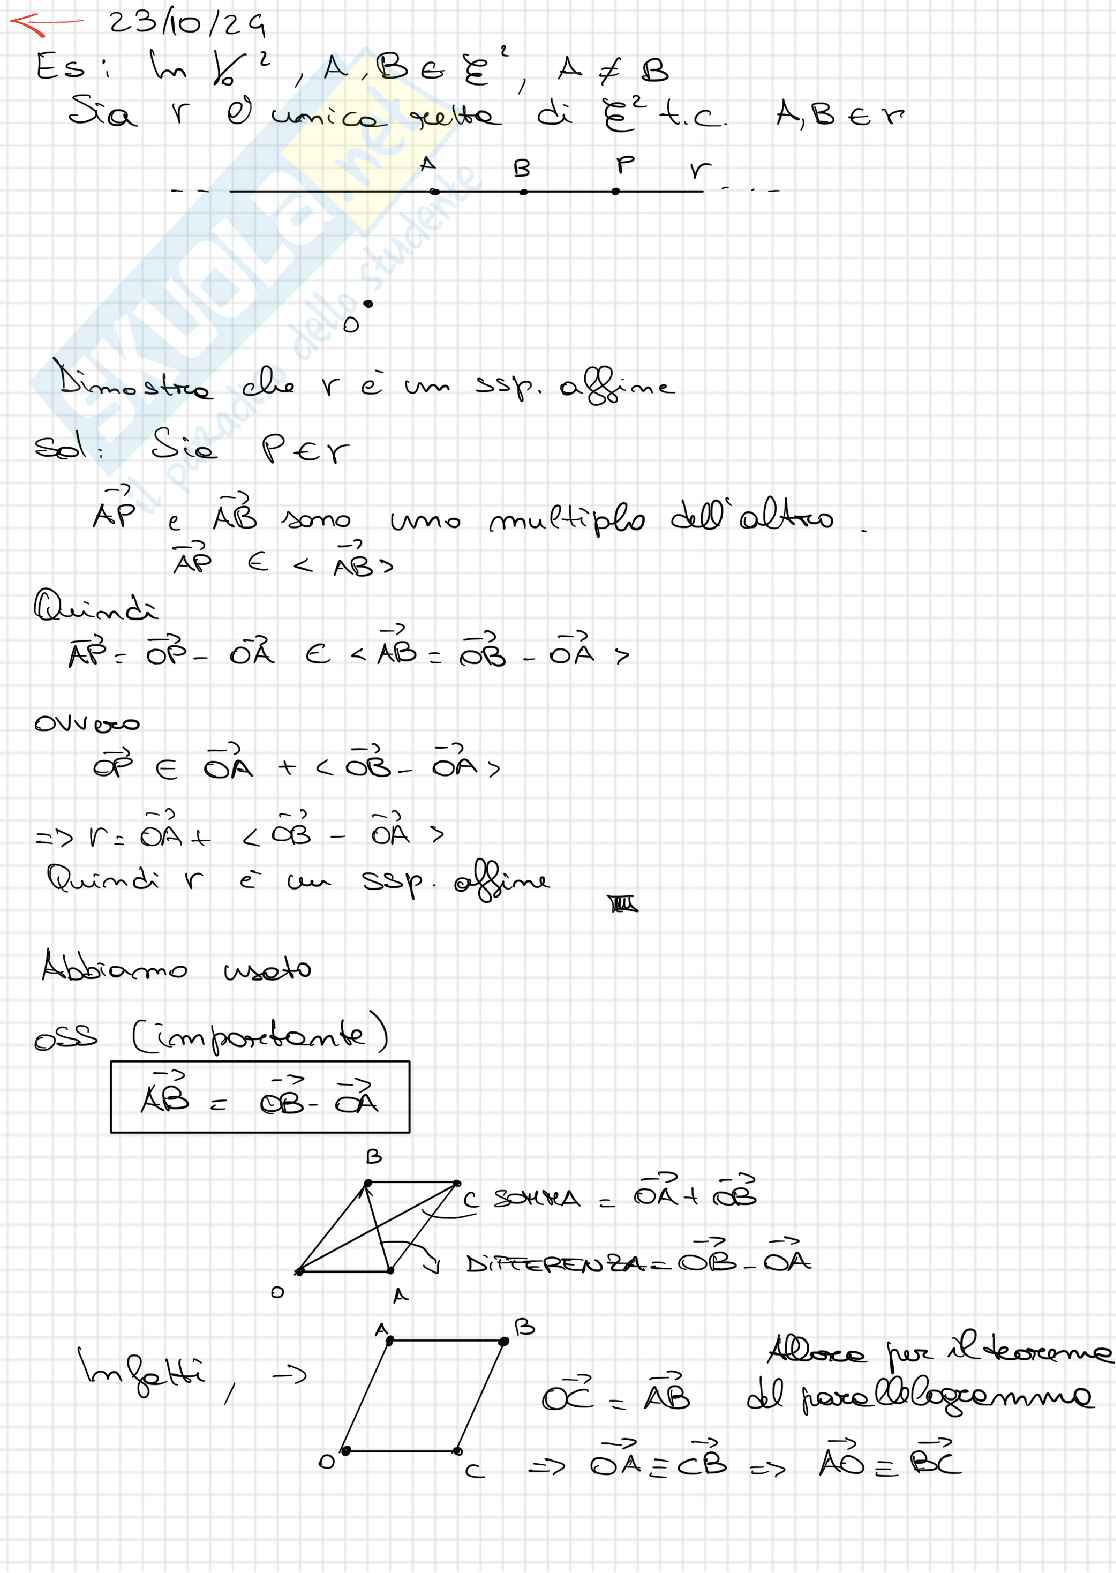 23/10/24
Es: In V₀², A,B ∈ ℰ², A ≠ B
Sia r l'unica retta di ℰ² t.c. A,B ∈ r
A B P r
O
Dimostra che r è un ssp. affine
Sol: Sia P ∈ r
AP→ e AB→ sono uno multiplo dell'altro.
AP→ ∈ < AB→ >
Quindi
AP→ = OP→ - OA→ ∈ < AB→ = OB→ - OA→ >
ovvero
OP→ ∈ OA→ + < OB→ - OA→ >
=> r = OA→ + < OB→ - OA→ >
Quindi r è un ssp. affine
Abbiamo usato
OSS (importante)
AB→ = OB→ - OA→
B
C SOMMA = OA→ + OB→
DIFFERENZA = OB→ - OA→
O A
A B
Infatti, →
Allora per il teorema
OC→ = AB→ del parallelogramma
O C => OA→ ≡ CB→ => AO→ ≡ BC→
SKUOLA.net
il paradiso dello studente